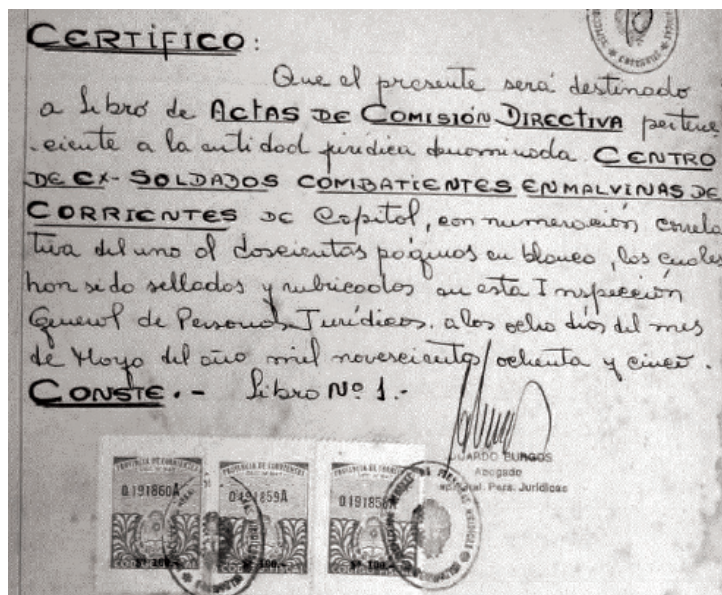 CERTIFICO:
Que el presente será destinado
a Libro de ACTAS DE COMISIÓN DIRECTIVA pertene
ciente a la entidad jurídica denominada CENTRO
DE EX-SOLDADOS COMBATIENTES EN MALVINAS DE
CORRIENTES DE Capital, con numeración correla
tiva del uno al doscientas páginas en blanco, las cuales
han sido sellados y rubricados en esta Inspección
General de Personas Jurídicas. a los ocho días del mes
de Mayo del año mil novescientos ochenta y cinco.
CONSTE.- Libro Nº 1.-
UARDO BURGOS
Abogado
Gral. Pers. Jurídicas
PROVINCIA DE CORRIENTES PROVINCIA DE CORRIENTES PROVINCIA DE CORRIENTES
0191860A 0191859A 0191858A
Nº 100.- 100.- Nº 100.-